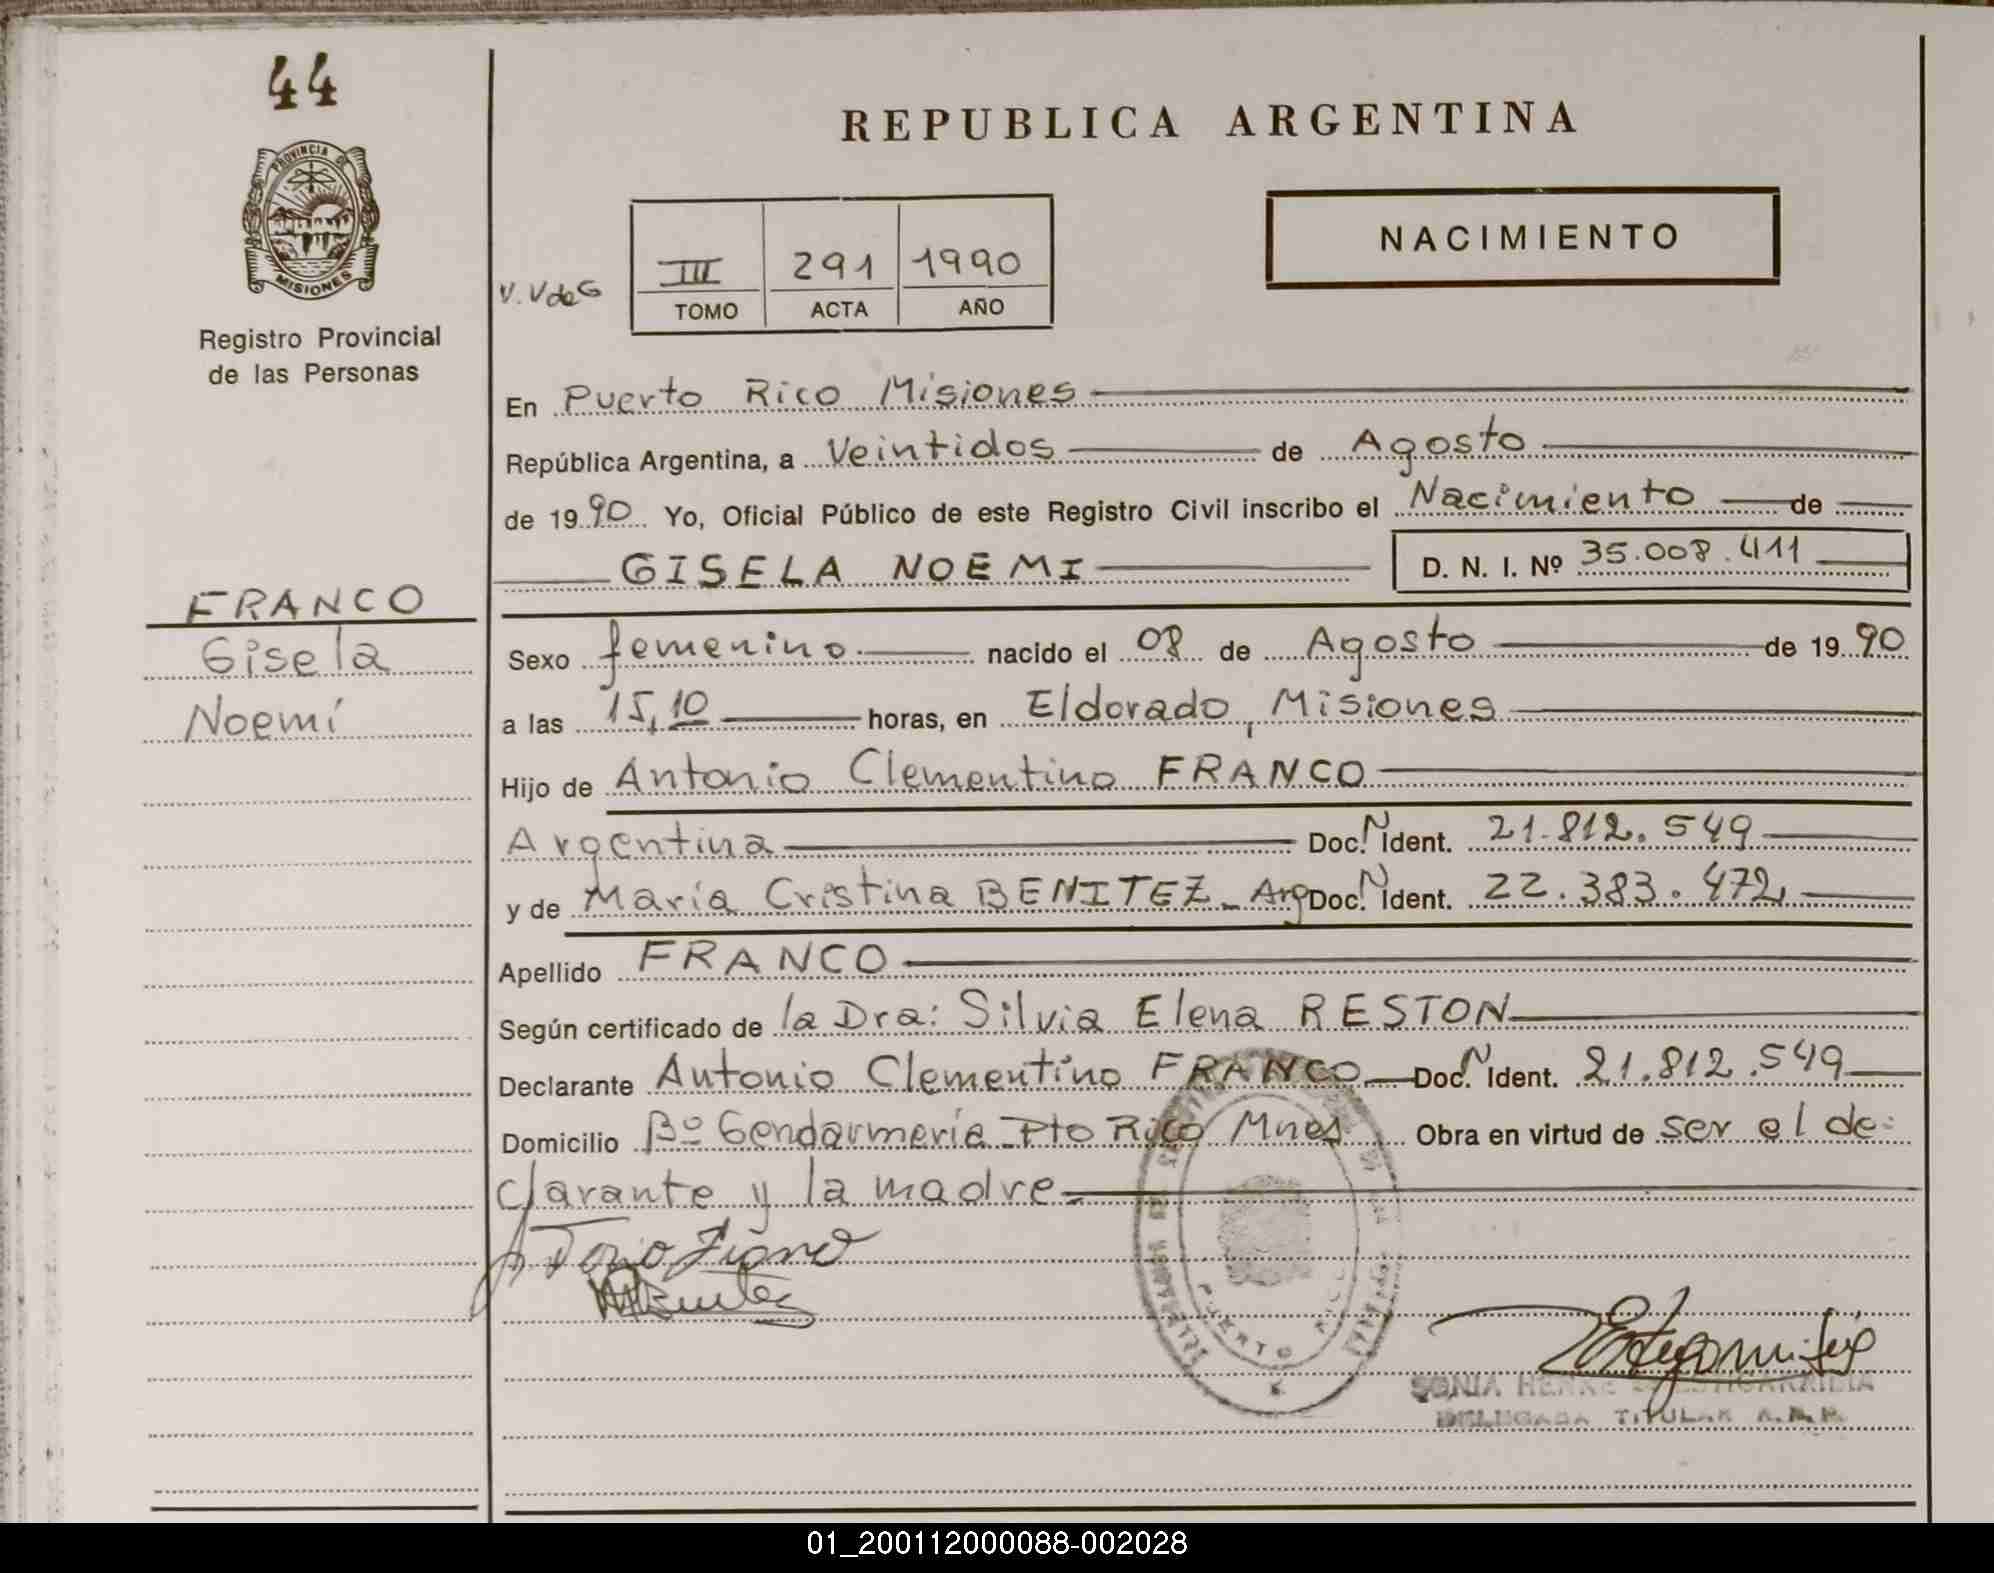 44
PROVINCIA DE
MISIONES
Registro Provincial
de las Personas
FRANCO
Gisela
Noemí
REPUBLICA ARGENTINA
NACIMIENTO
V. VdeG
III 291 1990
TOMO ACTA AÑO
En Puerto Rico Misiones
República Argentina, a Veintidos de Agosto
de 1990 Yo, Oficial Público de este Registro Civil inscribo el Nacimiento de
GISELA NOEMI D. N. I. Nº 35.008.411
Sexo femenino nacido el 08 de Agosto de 1990
a las 15,10 horas, en Eldorado, Misiones
Hijo de Antonio Clementino FRANCO
Argentina Doc. N Ident. 21.812.549
y de María Cristina BENITEZ - Arg Doc. N Ident. 22.383.472
Apellido FRANCO
Según certificado de la Dra: Silvia Elena RESTON
Declarante Antonio Clementino FRANCO Doc. N Ident. 21.812.549
Domicilio Bº Gendarmería Pto Rico Mnes Obra en virtud de ser el de-
clarante y la madre
PUERTO RICO
SONIA HENKE
DELEGADA TITULAR R.P.P.
01_200112000088-002028